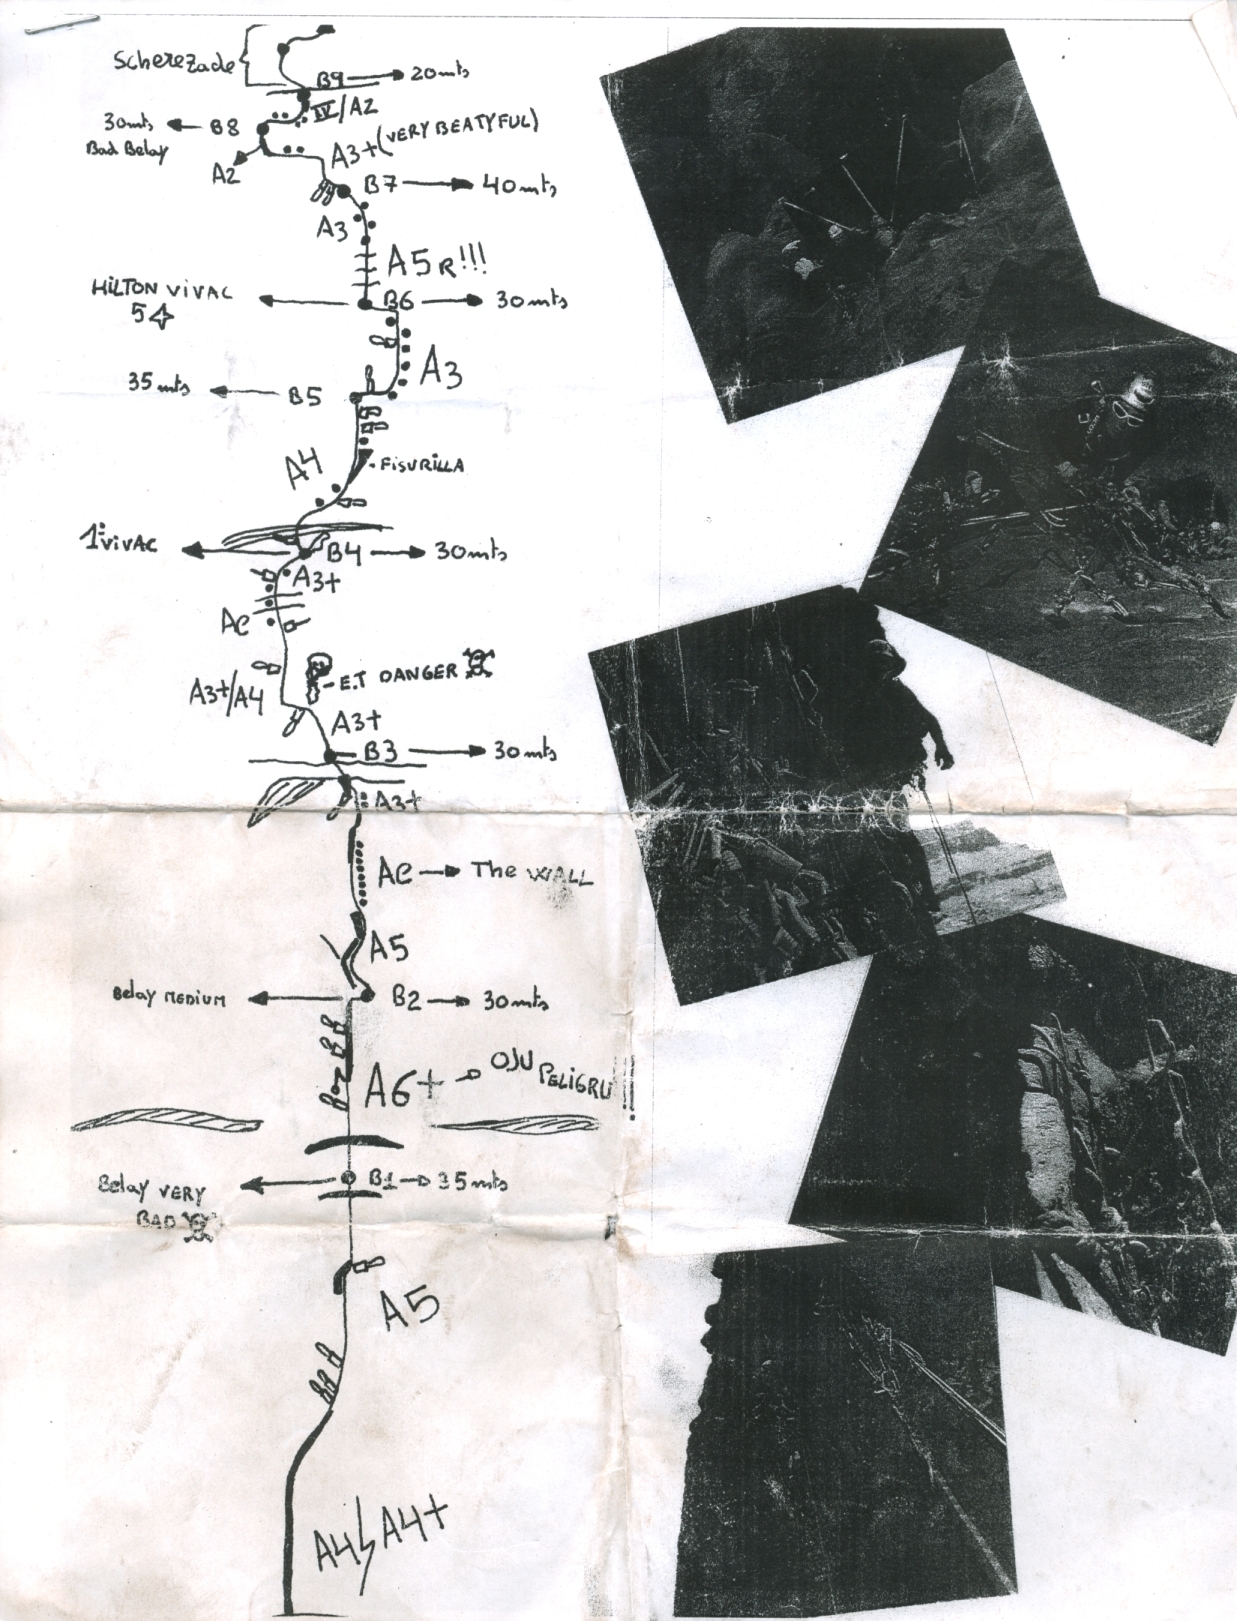 Scherezade
B9 20mts
IV/A2
30mts B8
Bad Belay
A3+(VERY BEATYFUL)
A2
B7 40mts
A3
A5R!!!
HILTON VIVAC
5
B6 30mts
A3
35mts B5
A4
FISURILLA
1º VIVAC
B4 30mts
A3+
Ae
E.T DANGER
A3+/A4
A3+
B3 30mts
A3+
Ae The WALL
A5
Belay MEDIUM B2 30mts
A6+ OJU PELIGRU !!
Belay VERY
BAD
B1 35mts
A5
A4/A4+